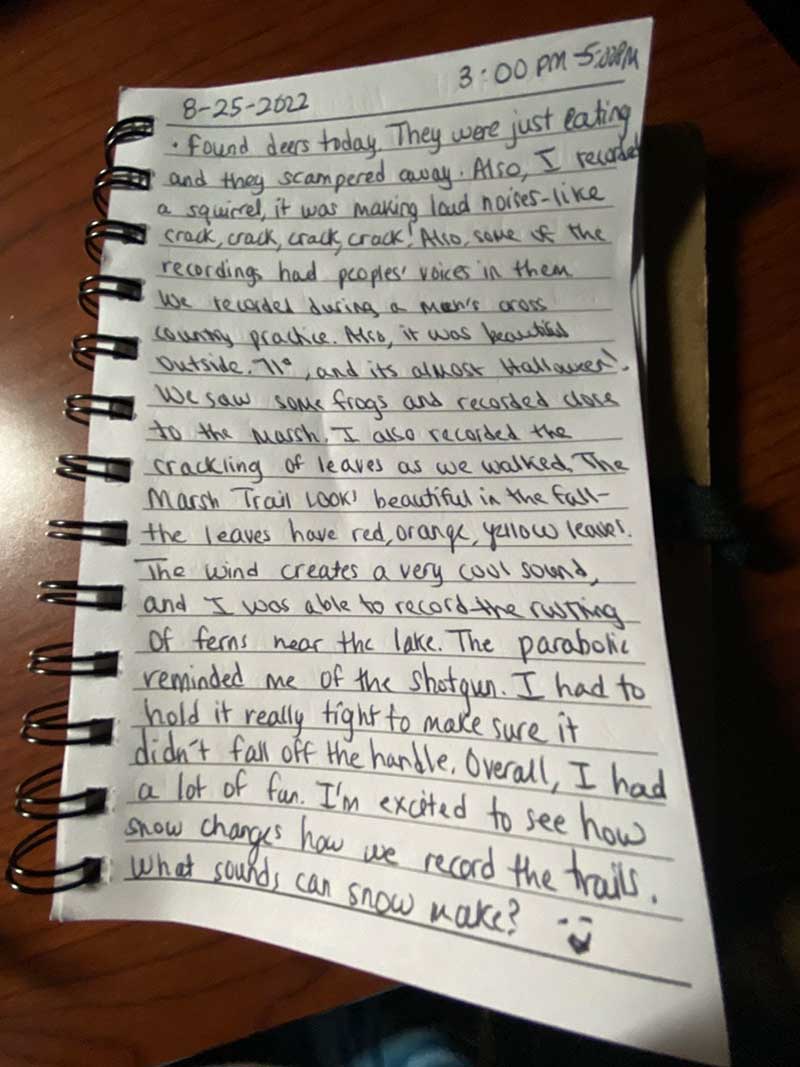 8-25-2022 3:00 PM-5:00PM
• Found deers today. They were just eating
and they scampered away. Also, I recorded
a squirrel, it was making loud noises-like
crack, crack, crack, crack! Also, some of the
recordings had peoples' voices in them
We recorded during a men's cross
country practice. Also, it was beautiful
outside. 71°, and its almost Halloween!
We saw some frogs and recorded close
to the marsh. I also recorded the
crackling of leaves as we walked. The
Marsh Trail looks beautiful in the fall-
the leaves have red, orange, yellow leaves.
The wind creates a very cool sound,
and I was able to record the rustling
of ferns near the lake. The parabolic
reminded me of the shotgun. I had to
hold it really tight to make sure it
didn't fall off the handle. Overall, I had
a lot of fun. I'm excited to see how
snow changes how we record the trails.
What sounds can snow make?